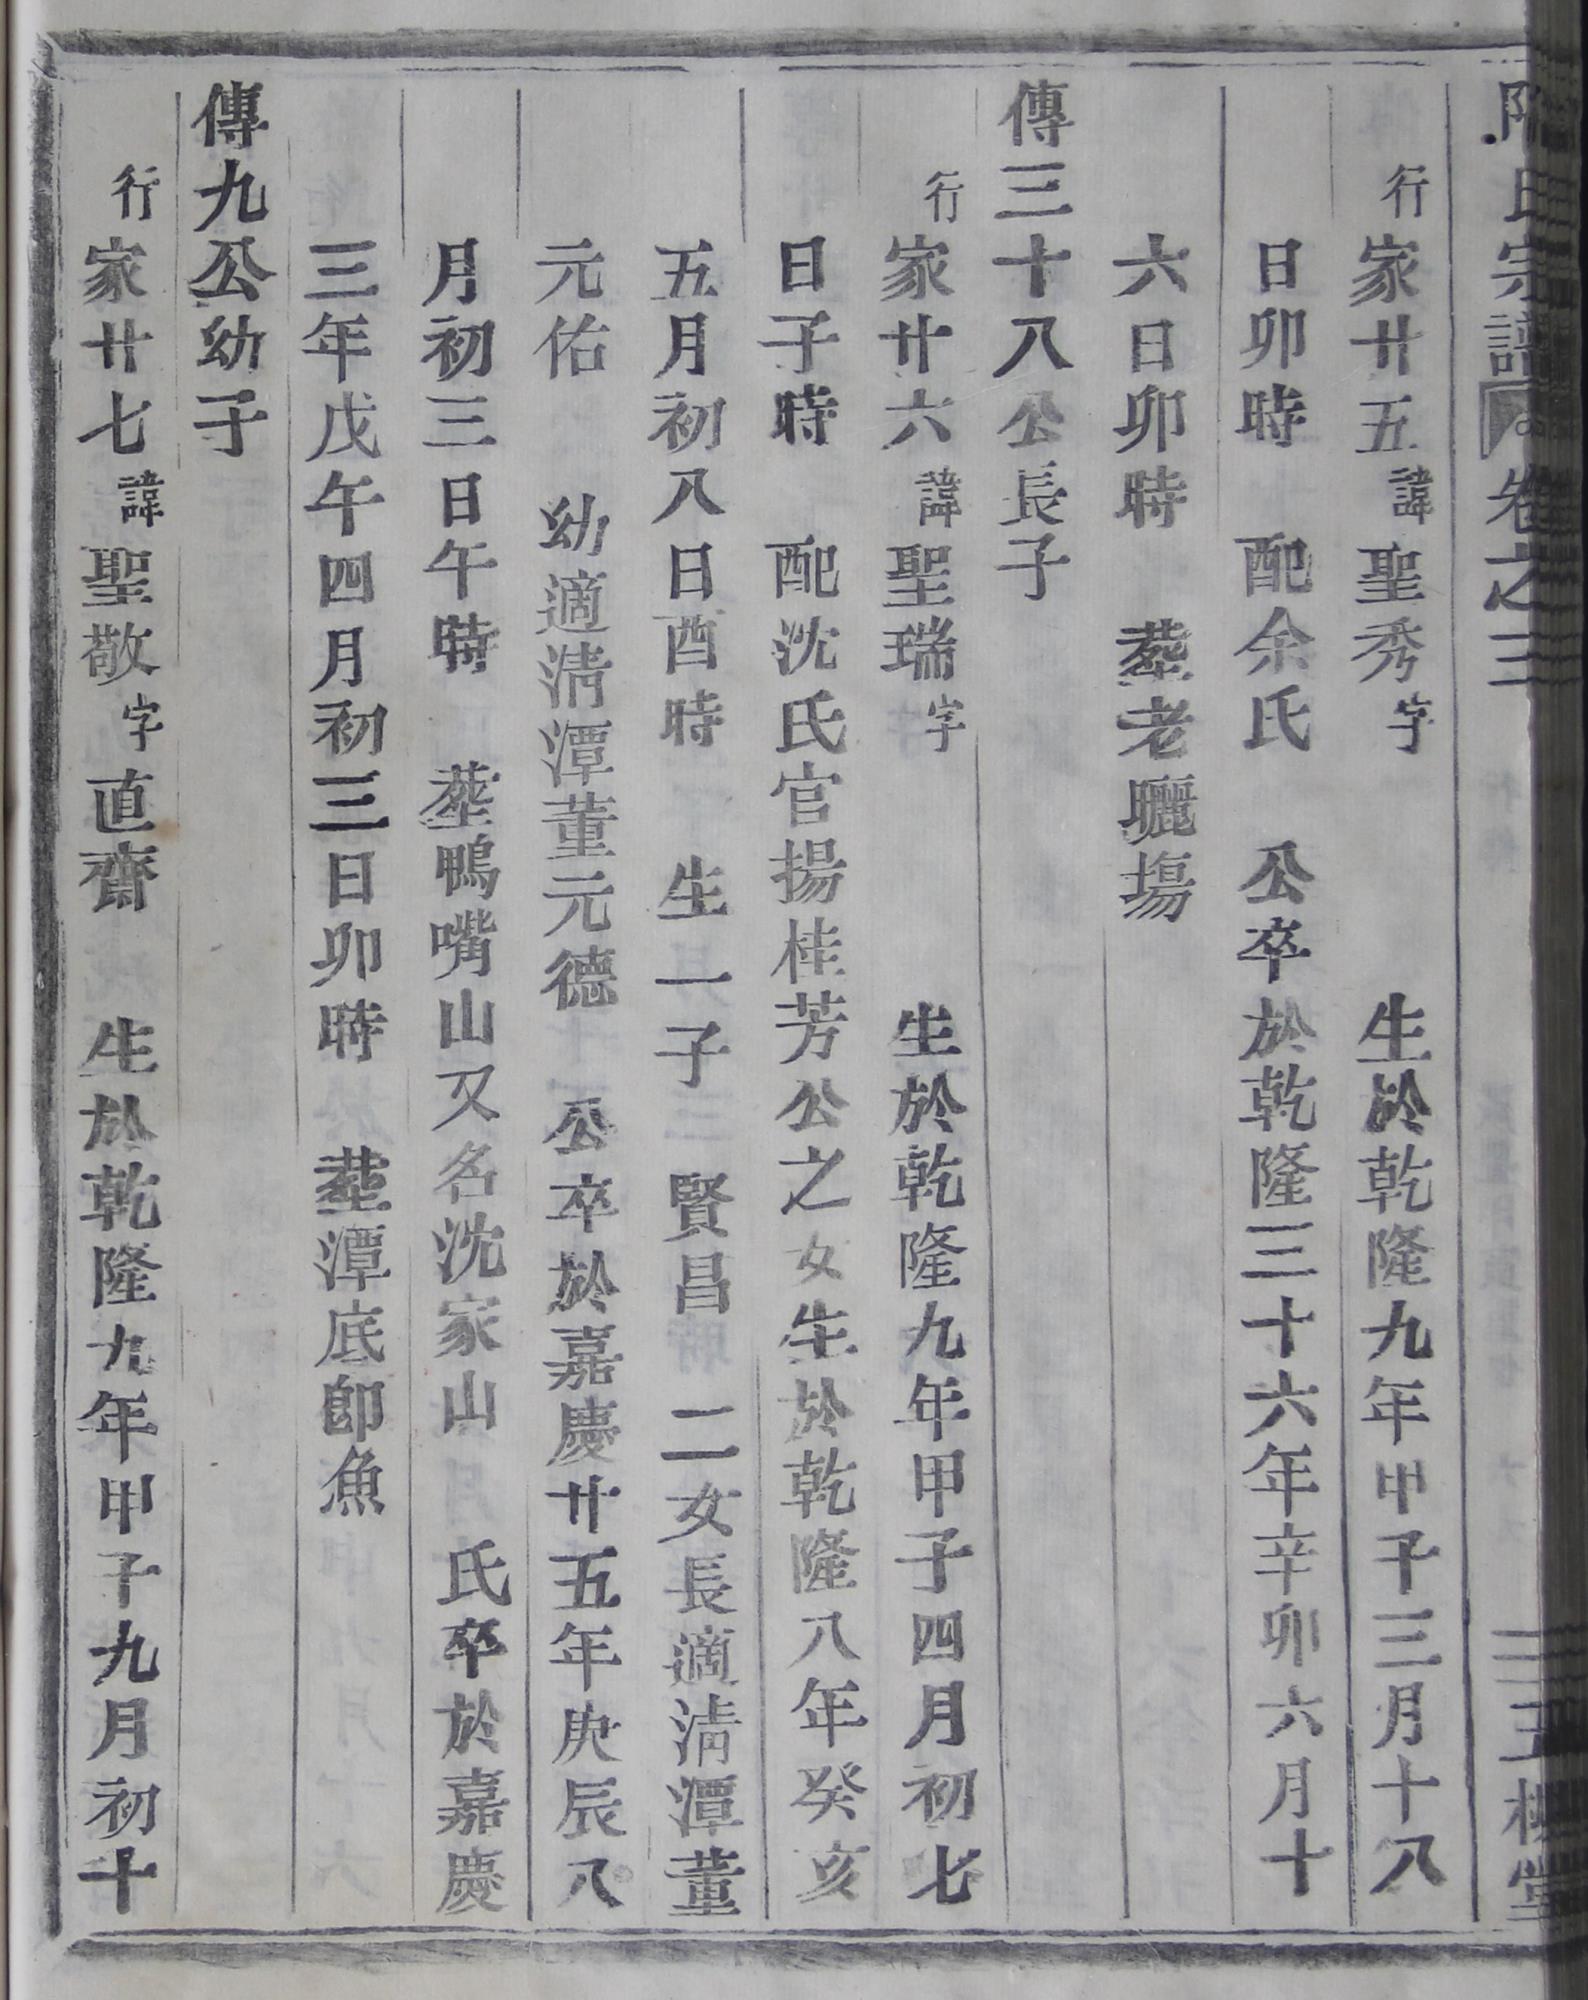 氏宗譜 卷之三
行家廿五諱聖秀字 生於乾隆九年甲子三月十八
日卯時 配余氏 公卒於乾隆三十六年辛卯六月十
六日卯時 葬老曬塲
傳三十八公長子
行家廿六諱聖瑞字 生於乾隆九年甲子四月初七
日子時 配沈氏官揚桂芳公之女生於乾隆八年癸亥
五月初八日酉時 生一子 賢昌 二女長適淸潭董
元佑 幼適淸潭董元德 公卒於嘉慶廿五年庚辰八
月初三日午時 葬鴨嘴山又名沈家山 氏卒於嘉慶
三年戊午四月初三日卯時 葬潭底卽魚
傳九公幼子
行家廿七諱聖敬字直齋 生於乾隆九年甲子九月初十